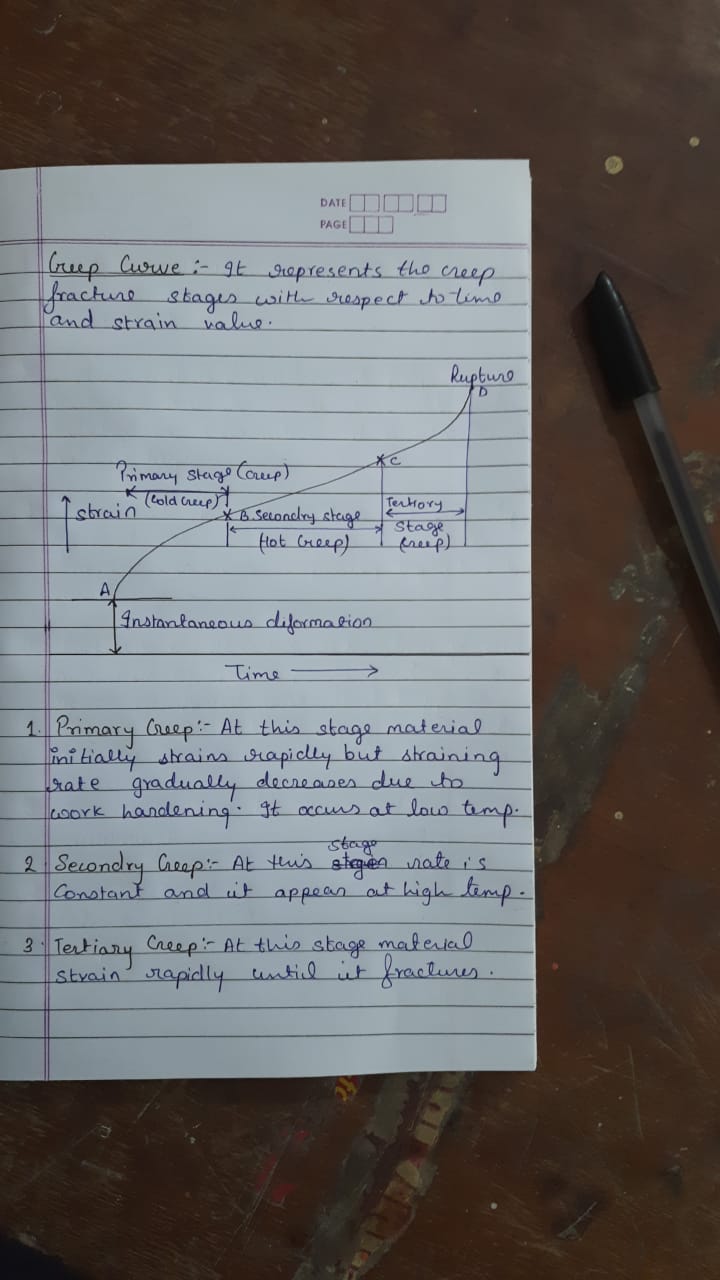 DATE
PAGE
Creep Curve :- It represents the creep
fracture stages with respect to time
and strain value.
Rupture
D
C
Primary Stage (Creep)
(Cold Creep)
strain
B Secondry stage
Hot Creep)
Tertiory
Stage
Creep)
A
Instantaneous diformation
Time
1. Primary Creep :- At this stage material
initially strains rapidly but straining
rate gradually decreases due to
work hardening. It occurs at low temp.
2 Secondry Creep :- At this stage rate is
Constant and it appear at high temp.
3. Tertiary Creep :- At this stage material
strain rapidly until it fractures.